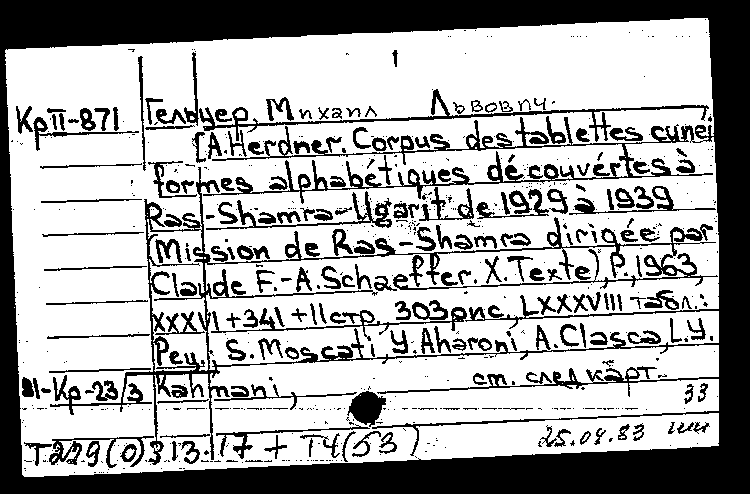 1
КрII-871 Гельцер, Михаил Львович.
[A. Herdner. Corpus des tablettes cunéi
formes alphabétiques découvértes à
Ras-Shamra-Ugarit de 1929 à 1939
(Mission de Ras-Shamra dirigée par
Claude F.-A. Schaeffer. X. Texte), P., 1963,
XXXVI+341+11 стр., 303 рис., LXXXVIII табл.:
Рец.: S. Moscati, Y. Aharoni, A. Clasca, L.Y.
II-Кр-23/3 Rahmani, ст. след карт.
33
Т229(0)313.117 + Т4(53) 25.04.83